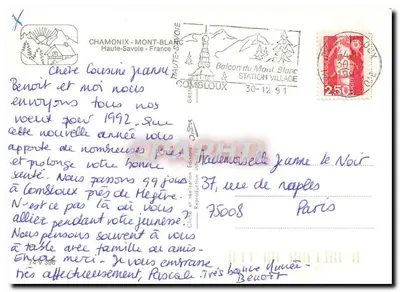 CHAMONIX - MONT-BLANC
Haute-Savoie - France
HAUTE-SAVOIE
Balcon du Mont Blanc
STATION VILLAGE
COMBLOUX
30-12 91
2,50
Chère Cousine Jeanne,
Benoit et moi nous
envoyons tous nos
voeux pour 1992. Que
cette nouvelle année vous
apporte de nombreuses
et prolonge votre bonne
santé. Nous passons 99 jours
à Combloux près de Megève.
N'est ce pas là où vous
alliez pendant votre jeunesse?
Nous pensons souvent à vous
à table avec famille ou amis-
Encore merci - Je vous embrasse
très affectueusement, Pascale. Très bonne Année.
Benoît
Mademoiselle Jeanne le Noir
37, rue de naples
75008 Paris